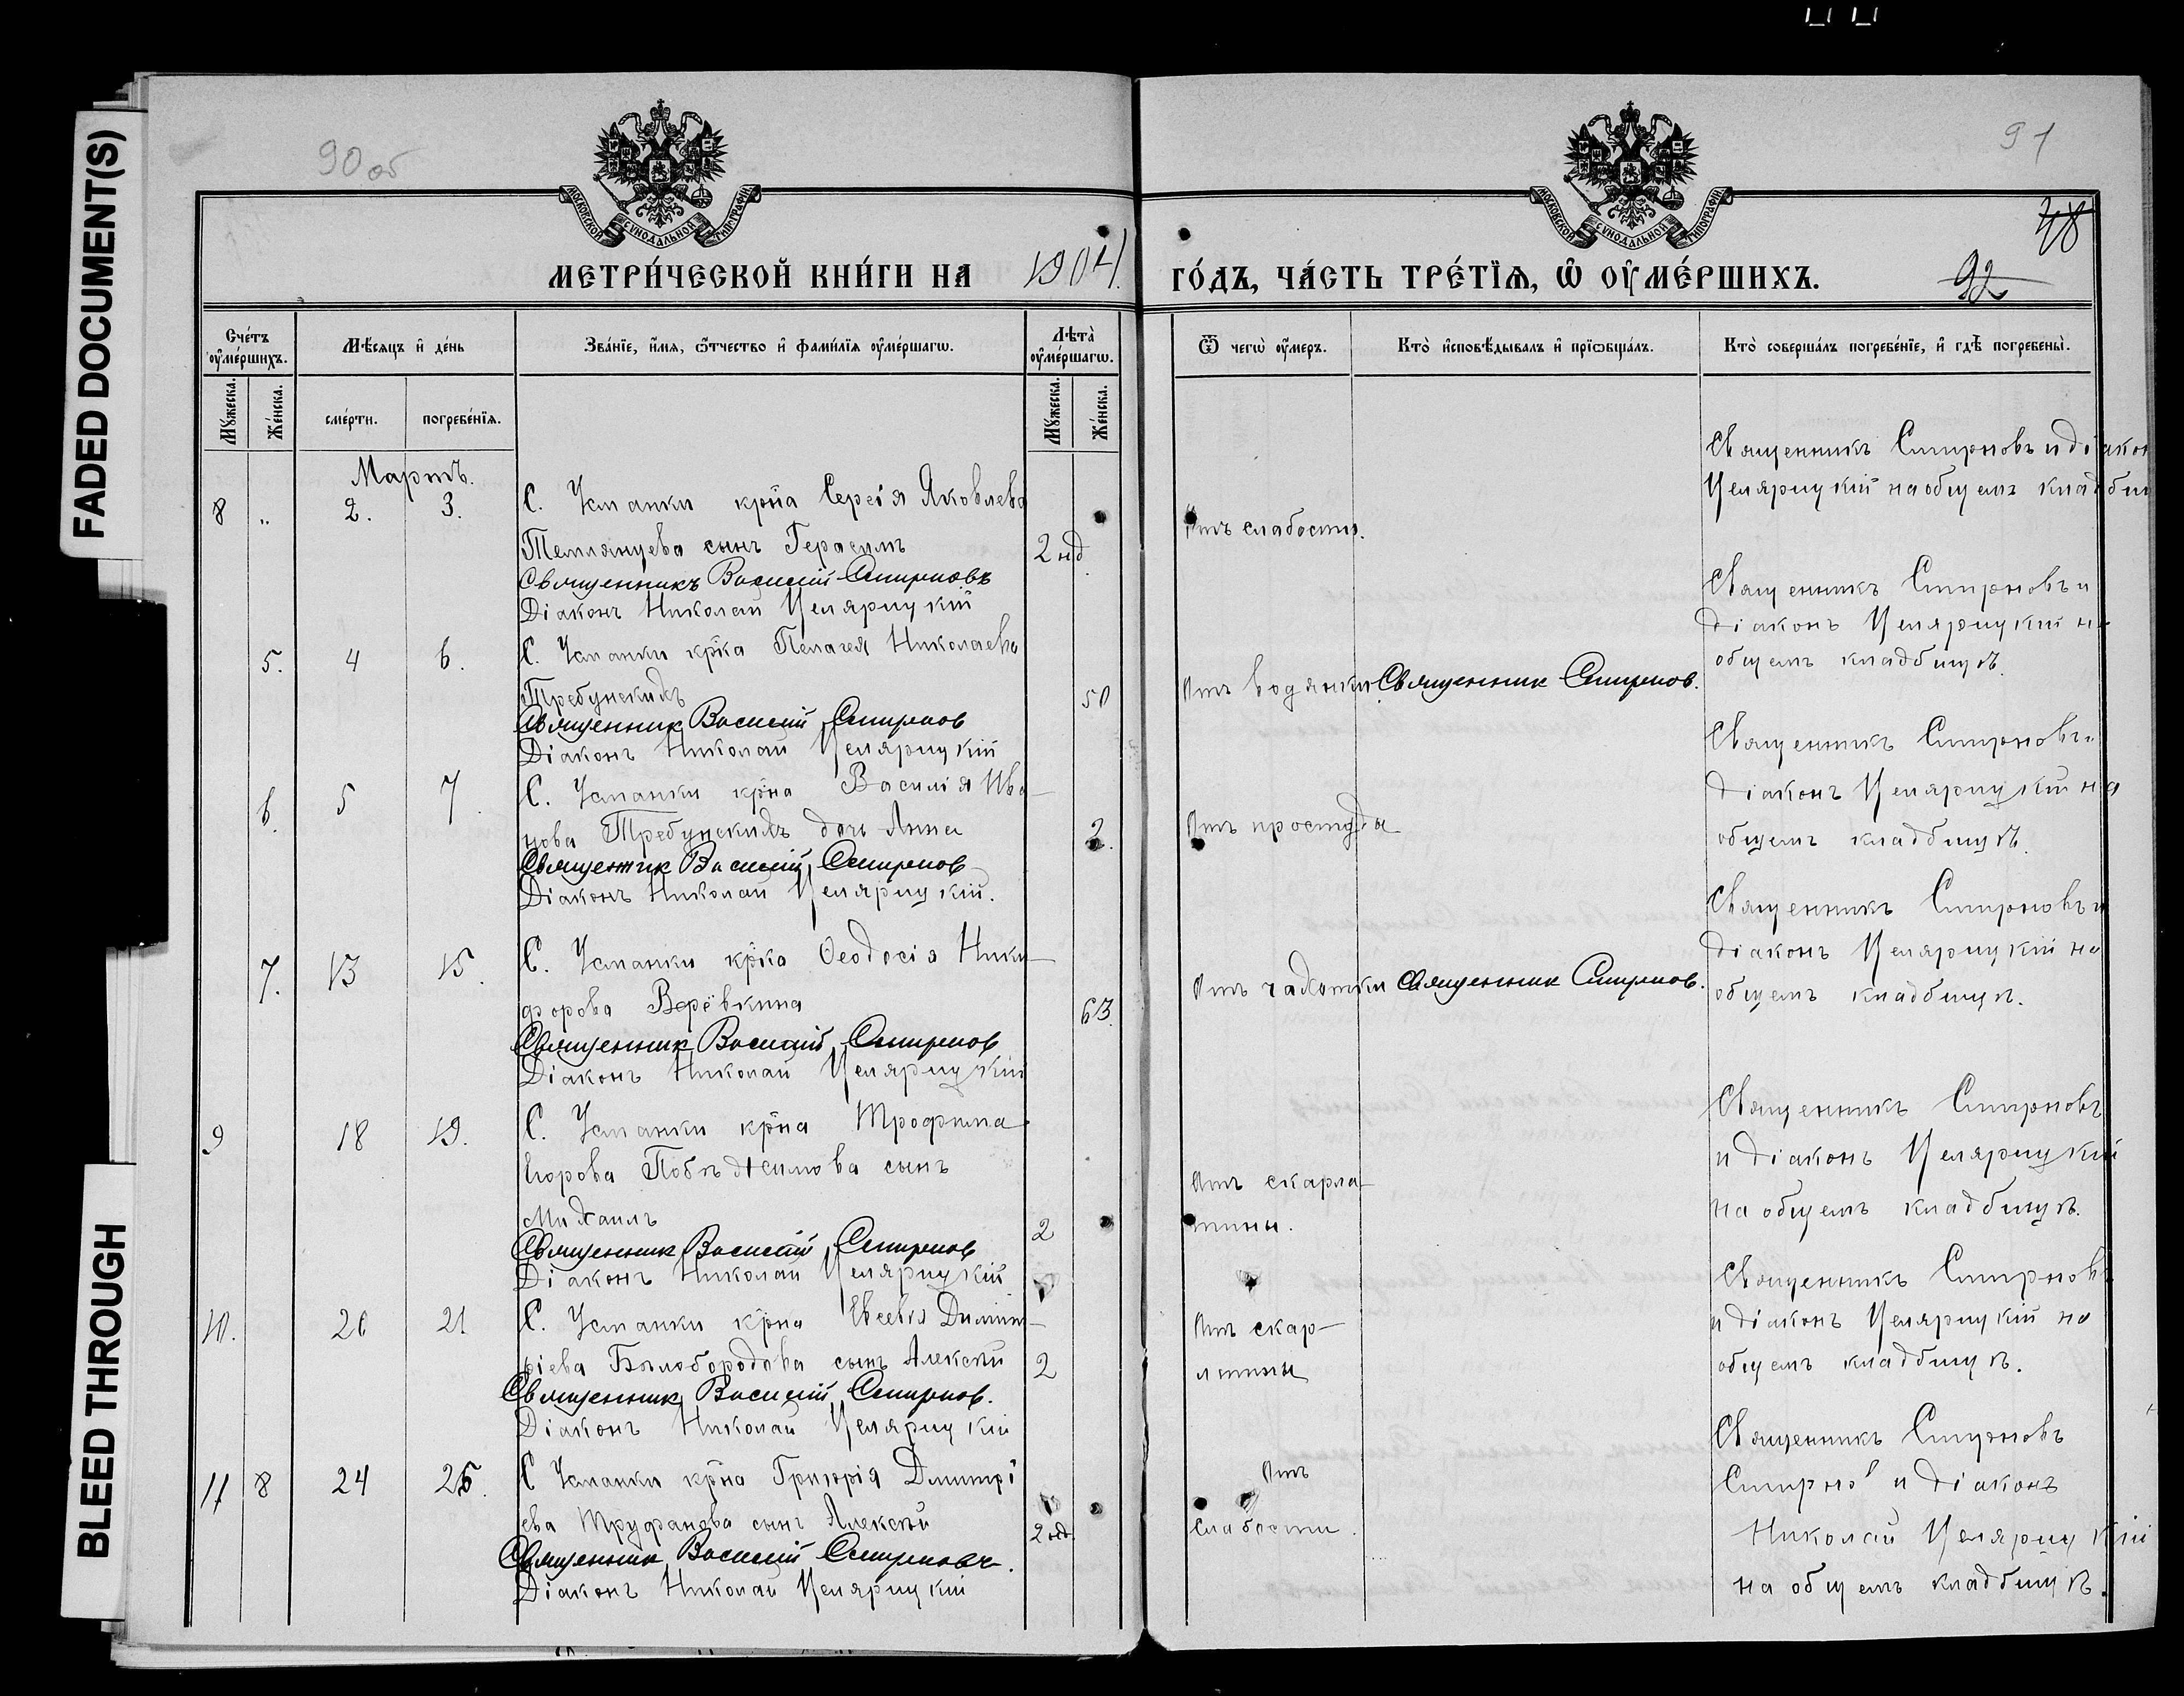 FADED DOCUMENT(S)
BLEED THROUGH
90 об
91
48
92
МОСКОВСКОЙ СѴНОДАЛЬНОЙ ТИПОГРАФІИ
МОСКОВСКОЙ СѴНОДАЛЬНОЙ ТИПОГРАФІИ
МЕТРИ́ЧЕСКОЙ КНИ́ГИ НА 1904 ГО́ДЪ, ЧА́СТЬ ТРЕ́ТЇѦ, Ѽ ОУ҆МЕ́РШИХЪ.
Сче́тъ оу҆ме́ршихъ.
Мѣ́сяцъ и҆ де́нь
Зва́нїе, и҆́мя, ѻ҆́тчество и҆ фами́лїя оу҆ме́ршагѡ.
Лѣта̀ оу҆ме́ршагѡ.
Ѿ чегѡ̀ оу҆́меръ.
Кто̀ и҆сповѣ́дывалъ и҆ прїѡбща́лъ.
Кто̀ соверша́лъ погребе́нїе, и҆ гдѣ̀ погребены̀.
Мꙋ́жеска. Же́нска.
сме́рти. погребе́нїя.
Мꙋ́жеска. Же́нска.
Мартъ.
8 „ 2. 3.
С. Усманки кр-на Сергія Яковлева
Темлянцева сынъ Герасимъ
2 нд
Священникъ Василій Смирновъ
Діаконъ Николай Целярицкій
Отъ слабости.
Священникъ Смирновъ и діакон
Целярицкій на общемъ кладбищ
5. 4 6.
С. Усманки кр-ка Пелагея Николаева
Требунскихъ
50
Священник Василій Смирнов
Діаконъ Николай Целярицкій
Отъ водянки
Священник Смирнов.
Священникъ Смирновъ и
діаконъ Целярицкій на
общемъ кладбищѣ.
6. 5 7.
С. Усманки кр-на Василія Ива-
нова Требунскихъ дочь Анна
2.
Священник Василій Смирнов
Діаконъ Николай Целярицкій.
Отъ простуды
Священникъ Смирновъ и
діаконъ Целярицкій на
общемъ кладбищѣ.
7. 13 15.
С. Усманки кр-ка Ѳеодосія Ники-
форова Верёвкина
63.
Священник Василій Смирнов
Діаконъ Николай Целярицкій
Отъ чахотки
Священник Смирнов.
Священникъ Смирновъ и
діаконъ Целярицкій на
общемъ кладбищѣ.
9 18 19.
С. Усманки кр-на Трофима
Егорова Побѣжимова сынъ
Михаилъ
2
Священник Василій Смирнов
Діаконъ Николай Целярицкій
Отъ скарла-
тины.
Священникъ Смирновъ
и діаконъ Целярицкій
на общемъ кладбищѣ.
10. 20 21
С. Усманки кр-на Евсевія Димит-
ріева Бѣлобородова сынъ Алексѣй
2
Священник Василій Смирнов.
Діаконъ Николай Целярицкій
Отъ скар-
латины
Священникъ Смирновъ
и діаконъ Целярицкій на
общемъ кладбищѣ.
11 8 24 25.
С Усманки кр-на Григорія Дмитрі
ева Труфанова сынъ Алексѣй
2 нед.
Священник Василій Смирновъ.
Діаконъ Николай Целярицкій
Отъ
слабости.
Священникъ Смирновъ
Смирно и діаконъ
Николай Целярицкій
на общемъ кладбищѣ.